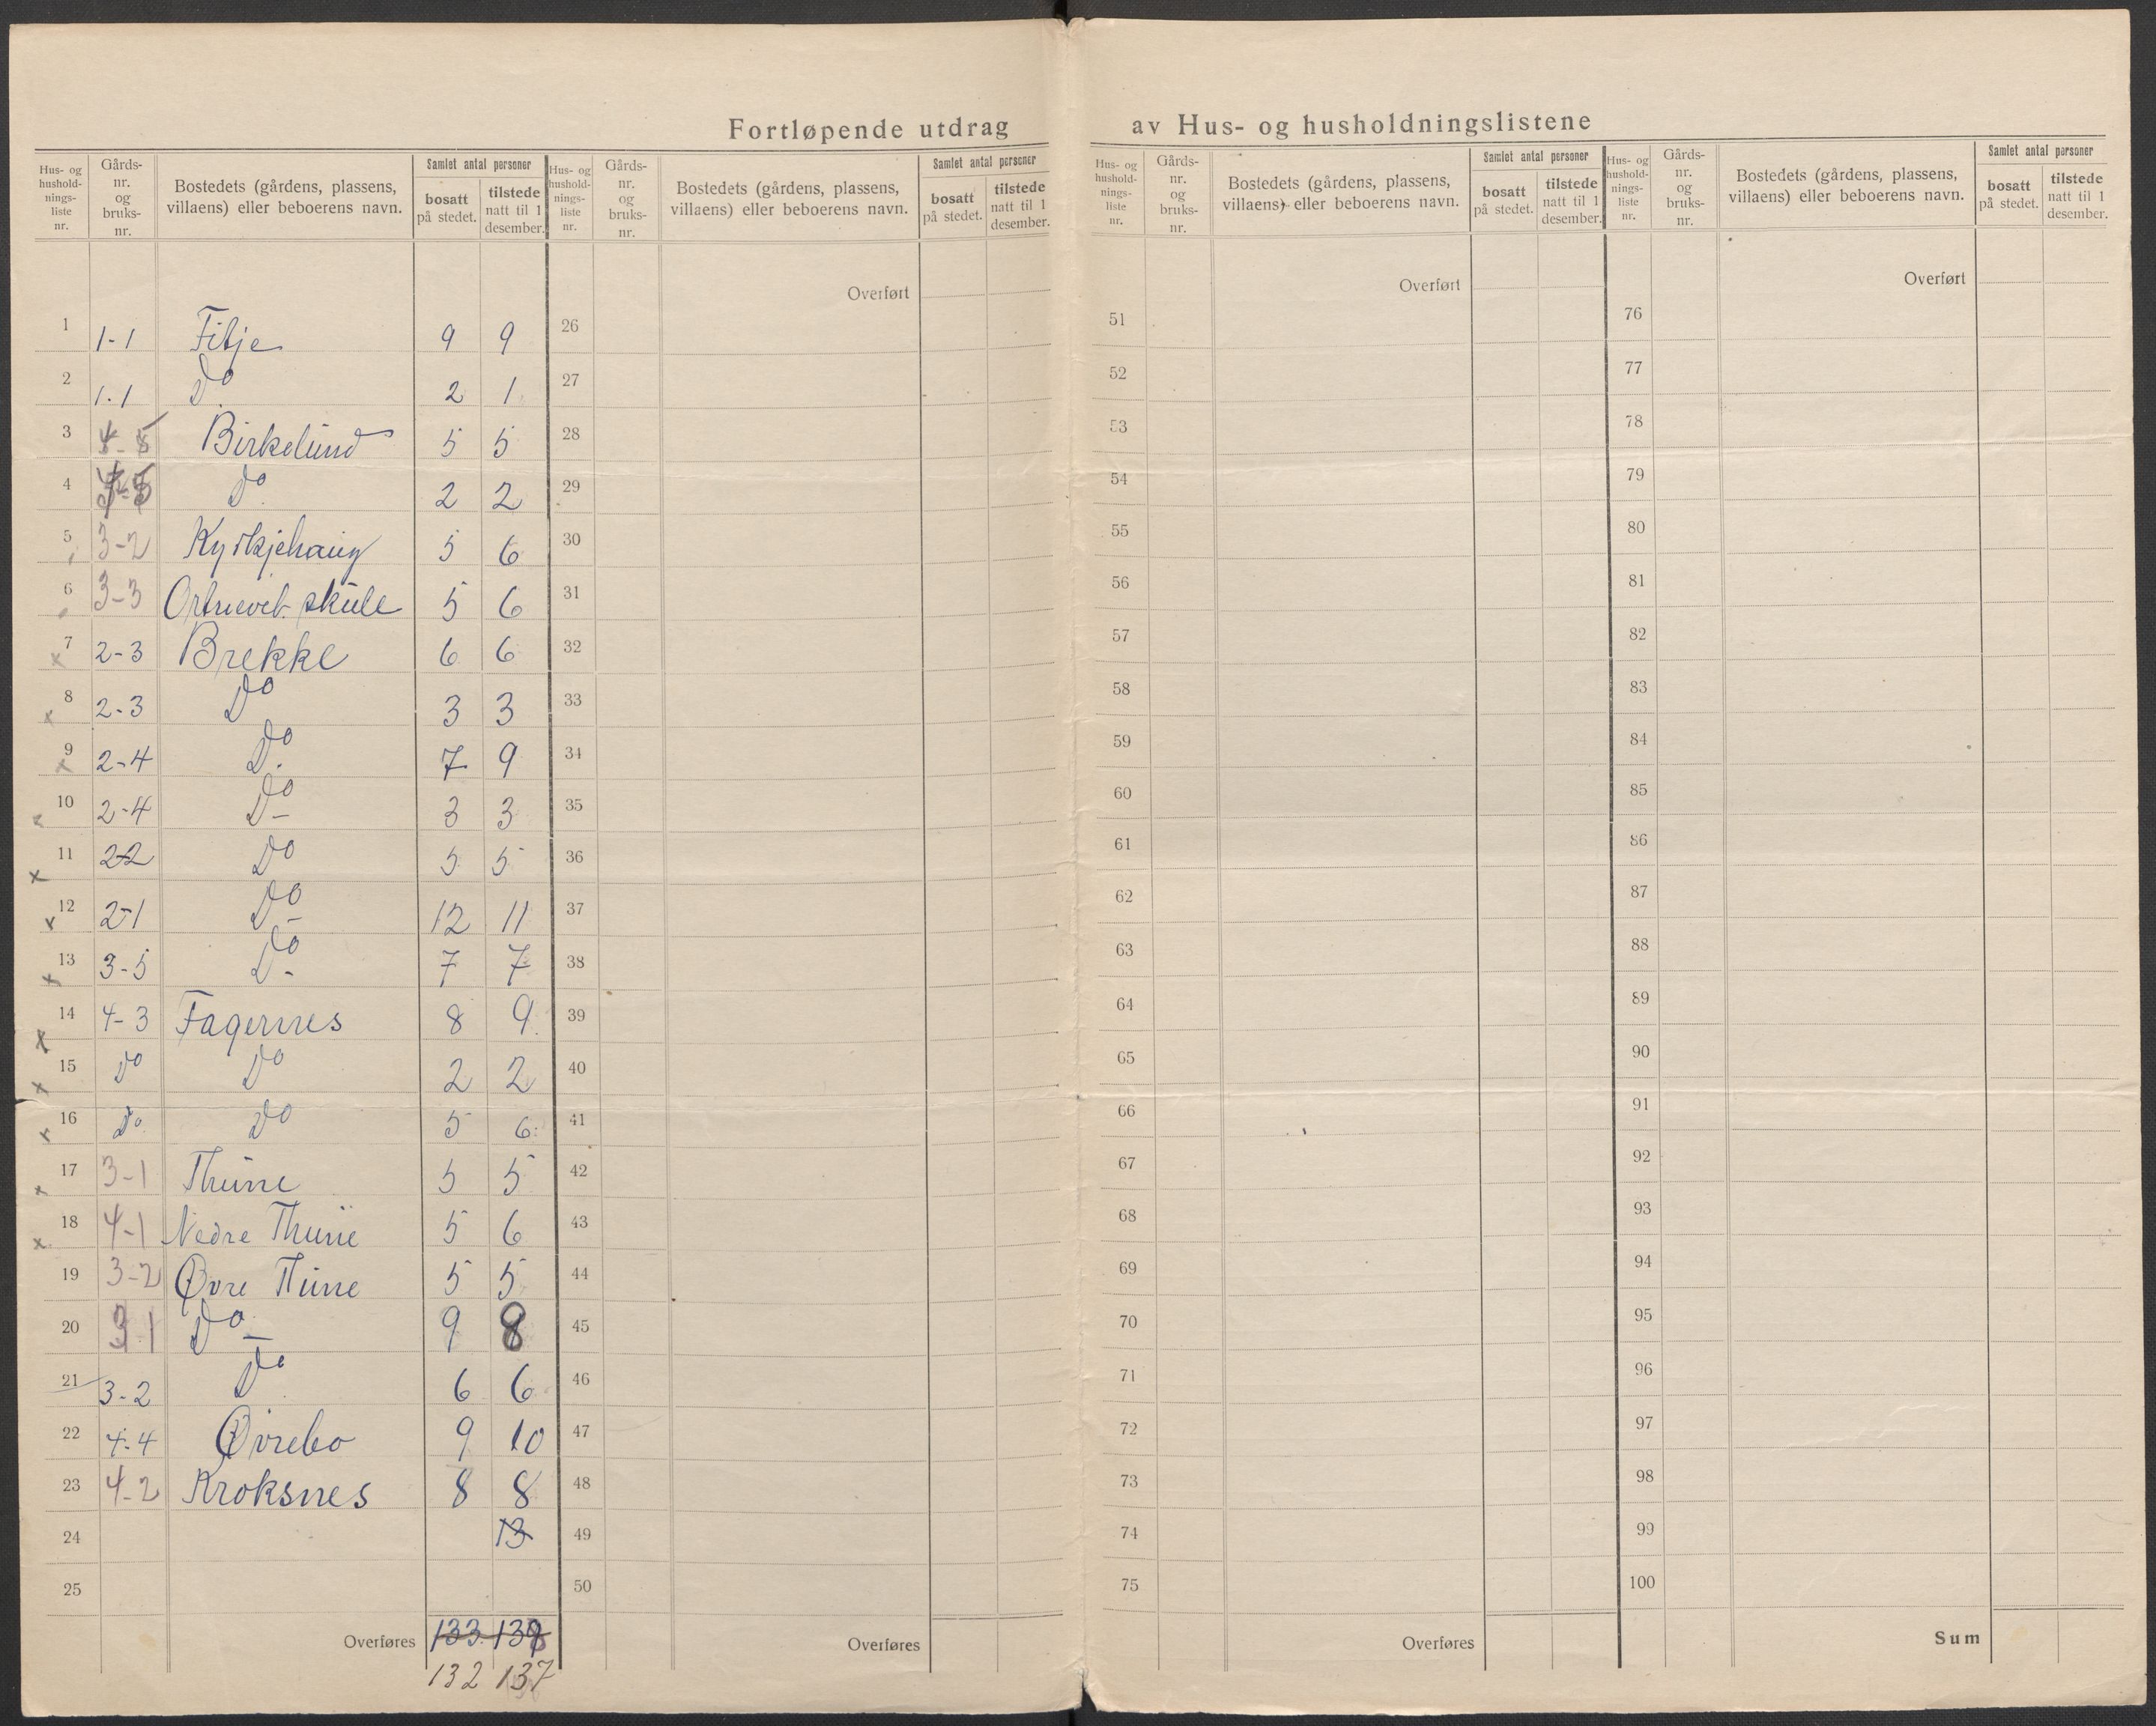 Fortløpende utdrag av Hus- og husholdningslistene
Hus- og hushold- nings- liste nr. Gårds- nr. og bruks- nr. Bostedets (gårdens, plassens, villaens) eller beboerens navn. Samlet antal personer bosatt på stedet. tilstede natt til 1 desember.
1 1-1 Fibje 9 9
2 1.1 Do 2 1
3 4-5 Birkelund 5 5
4 Do. 2 2
5 3-2 Kyrkjehaug 5 6
6 3-3 Ortnevik skule 5 6
7 2-3 Brekke 6 6
8 2-3 Do 3 3
9 2-4 Do. 7 9
10 2-4 Do 3 3
11 2-2 Do 5 5
12 2-1 Do 12 11
13 3-5 Do 7 7
14 4-3 Fagernes 8 9.
15 Do Do 2 2
16 Do. Do 5 6
17 3-1 Thune 5 5
18 4-1 Nedre Thune 5 6
19 3-2 Øvre Thune 5 5
20 3-1 Do 9 8
21 3-2 Do 6 6
22 4-4 Øvrebo 9 10
23 4-2 Kroksnes 8 8
24 13
25
Overføres 133 138
132 137
Hus- og hushold- nings- liste nr. Gårds- nr. og bruks- nr. Bostedets (gårdens, plassens, villaens) eller beboerens navn. Samlet antal personer bosatt på stedet. tilstede natt til 1 desember.
Overført
26
27
28
29
30
31
32
33
34
35
36
37
38
39
40
41
42
43
44
45
46
47
48
49
50
Overføres
Hus- og hushold- nings- liste nr. Gårds- nr. og bruks- nr. Bostedets (gårdens, plassens, villaens) eller beboerens navn. Samlet antal personer bosatt på stedet. tilstede natt til 1 desember.
Overført
51
52
53
54
55
56
57
58
59
60
61
62
63
64
65
66
67
68
69
70
71
72
73
74
75
Overføres
Hus- og hushold- nings- liste nr. Gårds- nr. og bruks- nr. Bostedets (gårdens, plassens, villaens) eller beboerens navn. Samlet antal personer bosatt på stedet. tilstede natt til 1 desember.
Overført
76
77
78
79
80
81
82
83
84
85
86
87
88
89
90
91
92
93
94
95
96
97
98
99
100
Sum